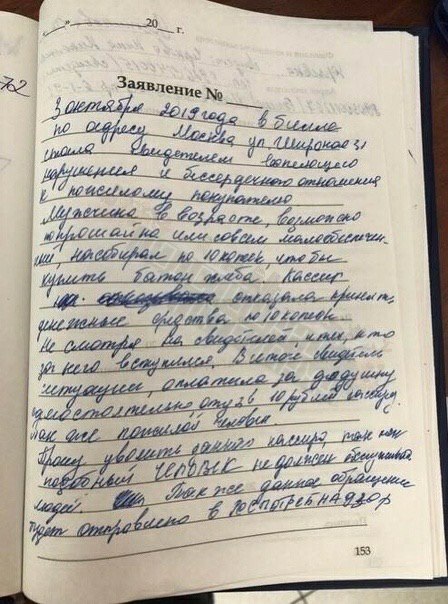 20 г.
Заявление №
3 октября 2019 года в Билла
по адресу Москва ул. Широкая 31
стала свидетелем вопиющего
нарушения и бессердечного отношения
к пожилому покупателю
Мужчина в возрасте, возможно
попрошайка или совсем малообеспечен-
ный, насобирал по 10 копеек чтобы
купить батон хлеба. Кассир
отказала принять
денежные средства по 10 копеек.
Не смотря на свидетелей, и тех, кто
за него вступился. В итоге свидетель
ситуации, оплатила за дедушку
самостоятельно отдав 10 рублей кассиру.
Так же пожилой человек.
Прошу уволить данного кассира, так как
подобный ЧЕЛОВЕК не должен обслуживать
людей. Также данное обращение
будет отправлено в РОСПОТРЕБНАДЗОР
153